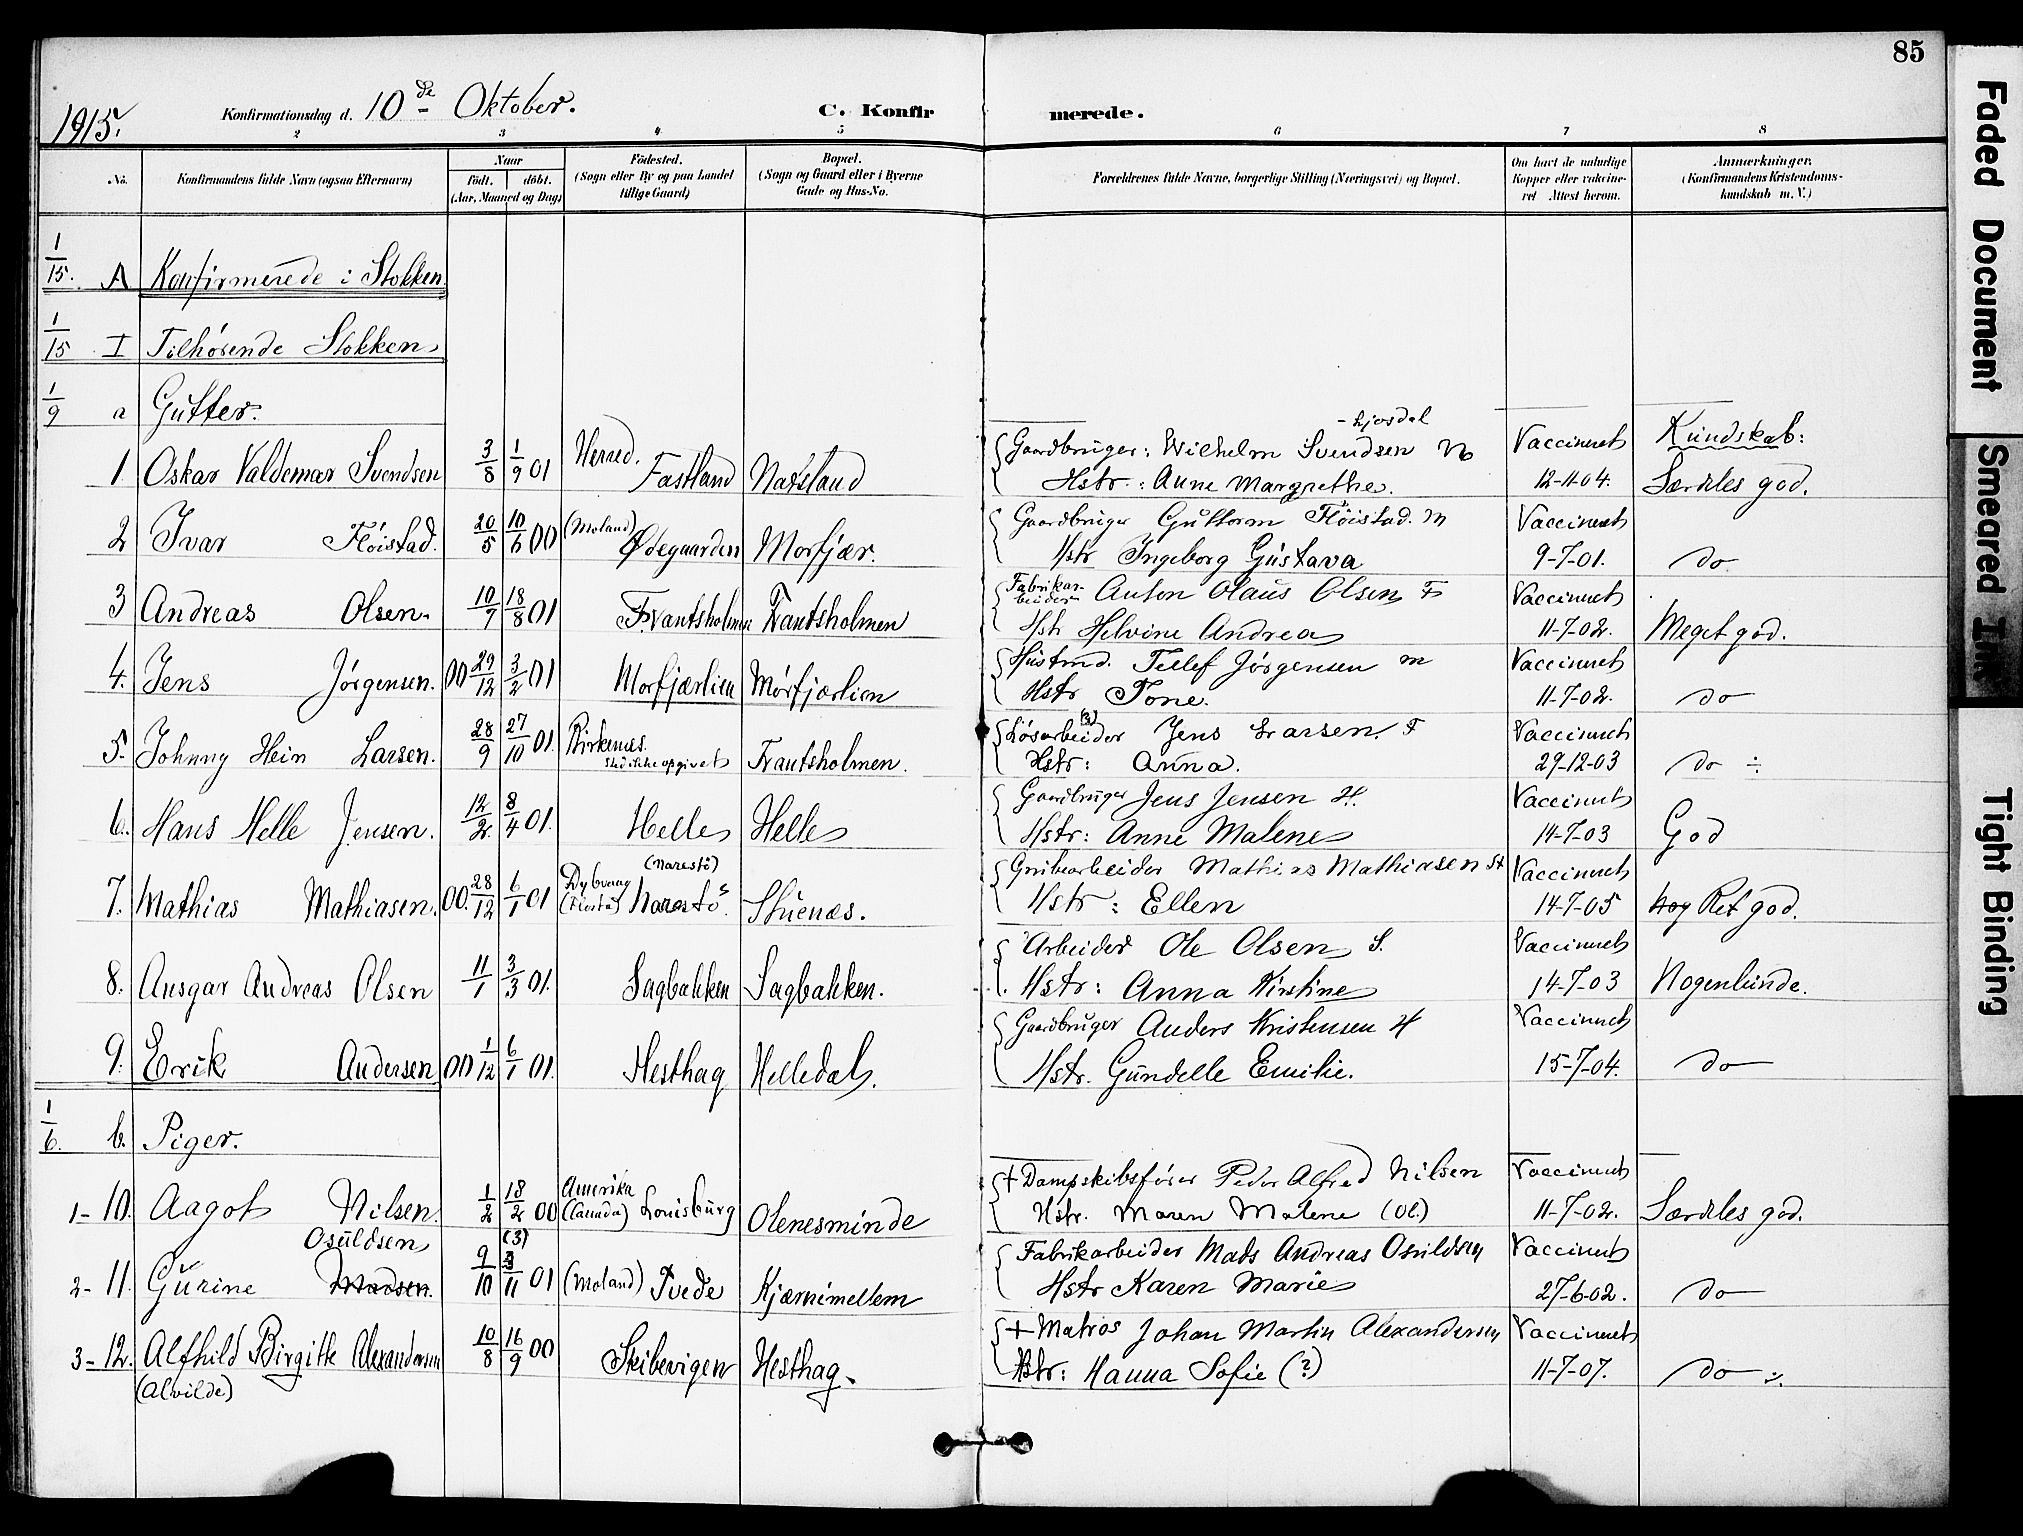 85
1915. Konfirmationsdag d. 10de Oktober. C. Konfirmerede.
2 3 4 5 6 7 8
No. Konfirmandens fulde Navn (ogsaa Efternavn) Naar født. døbt. (Aar, Maaned og Dag) Fødested. (Sogn eller By og paa Landet tillige Gaard) Bopæl. (Sogn og Gaard eller i Byerne Gade og Hus-No. Forældrenes fulde Navne, borgerlige Stilling (Næringsvei) og Bopæl. Om havt de naturlige Kopper eller vaccineret Attest herom. Anmærkninger. (Konfirmandens Kristendomskundskab m. V.)
1/15. A Konfirmerede i Stokken
1/15 I Tilhørende Stokken
1/9 a Gutter.
- Ljosdal
1 Oskar Valdemar Svendsen 3/8 1/9 01 Herred. Fastland Natsland Gaardbruger: Wilhelm Svendsen N Vaccineret Kundskab:
Hstr.: Anne Margrethe. 12-11-04. Særdeles god.
2 Ivar Fløistad. 20/5 10/6 00 (Moland) Ødegaarden Morfjær. Gaardbruger Guttorm Fløistad. M Vaccineret
Hstr Ingeborg Gustava 9-7-01. do
3 Andreas Olsen. 10/7 18/8 01 Frantsholmen Frantsholmen Fabrikarbeider Anton Olaus Olsen F Vaccineret
Hstr Helvine Andrea 11-7-02. Meget god.
4. Jens Jørgensen. 00 29/12 3/2 01 Morfjærlien Morfjærlien Husmd. Tellef Jørgensen M Vaccineret
Hstr Tone. 11-7-02. do
5. Johnny Hein Larsen. 28/9 27/10 01 Birkenæs. Sted ikke opgivet Frantsholmen. Løsarbeider (3) Jens Larsen. F Vaccineret
Hstr: Anna. 29-12-03 do ÷
6. Hans Helle Jensen. 12/2 8/4 01. Helle Helle Gaardbruger Jens Jensen H. Vaccineret
Hstr: Anne Malene 14-7-03 God
7. Mathias Mathiasen. 00. 28/12 6/1 01 Dybvaag (Flosta) (Narestö) Narestö. Stuenæs. Grubearbeider Mathias Mathiasen St Vaccineret
Hstr: Ellen 14-7-05 Nog Ret god.
8. Ansgar Andreas Olsen 11/1 3/3 01. Sagbakken Sagbakken. Arbeider Ole Olsen S. Vaccineret
Hstr: Anna Kirstine 14-7-03 Nogenlunde.
9. Erik Andersen 00 1/12 6/1 01. Hesthag Helledal. Gaardbruger Anders Kristensen H Vaccineret
Hstr. Gundelle Emilie. 15-7-04. do
1/6. b. Piger.
1-10. Aagot Nilsen. 1/2 18/2 00 Amerika (Canada) Louisburg Olenesminde + Dampskibsfører Peder Alfred Nilsen Vaccineret
Hstr. Maren Malene (Ol.) 11-7-02. Særdeles god.
2-11. Gurine Madsen. Osuldsen 9/10 (3) 3/11 01 (Moland) Tvede Kjærnimellem Fabrikarbeider Mads Andreas Osuldsen Vaccineret
Hstr Karen Marie 27-6-02. do
3-12. Alfhild Birgitte Alexandersen 10/8 16/9 00 Skibevigen Hesthag. + Matros Johan Martin Alexandersen Vaccineret
(Alvilde) Hstr: Hanna Sofie (?) 11-7-07. do ÷
Faded Document
Smeared Ink
Tight Binding